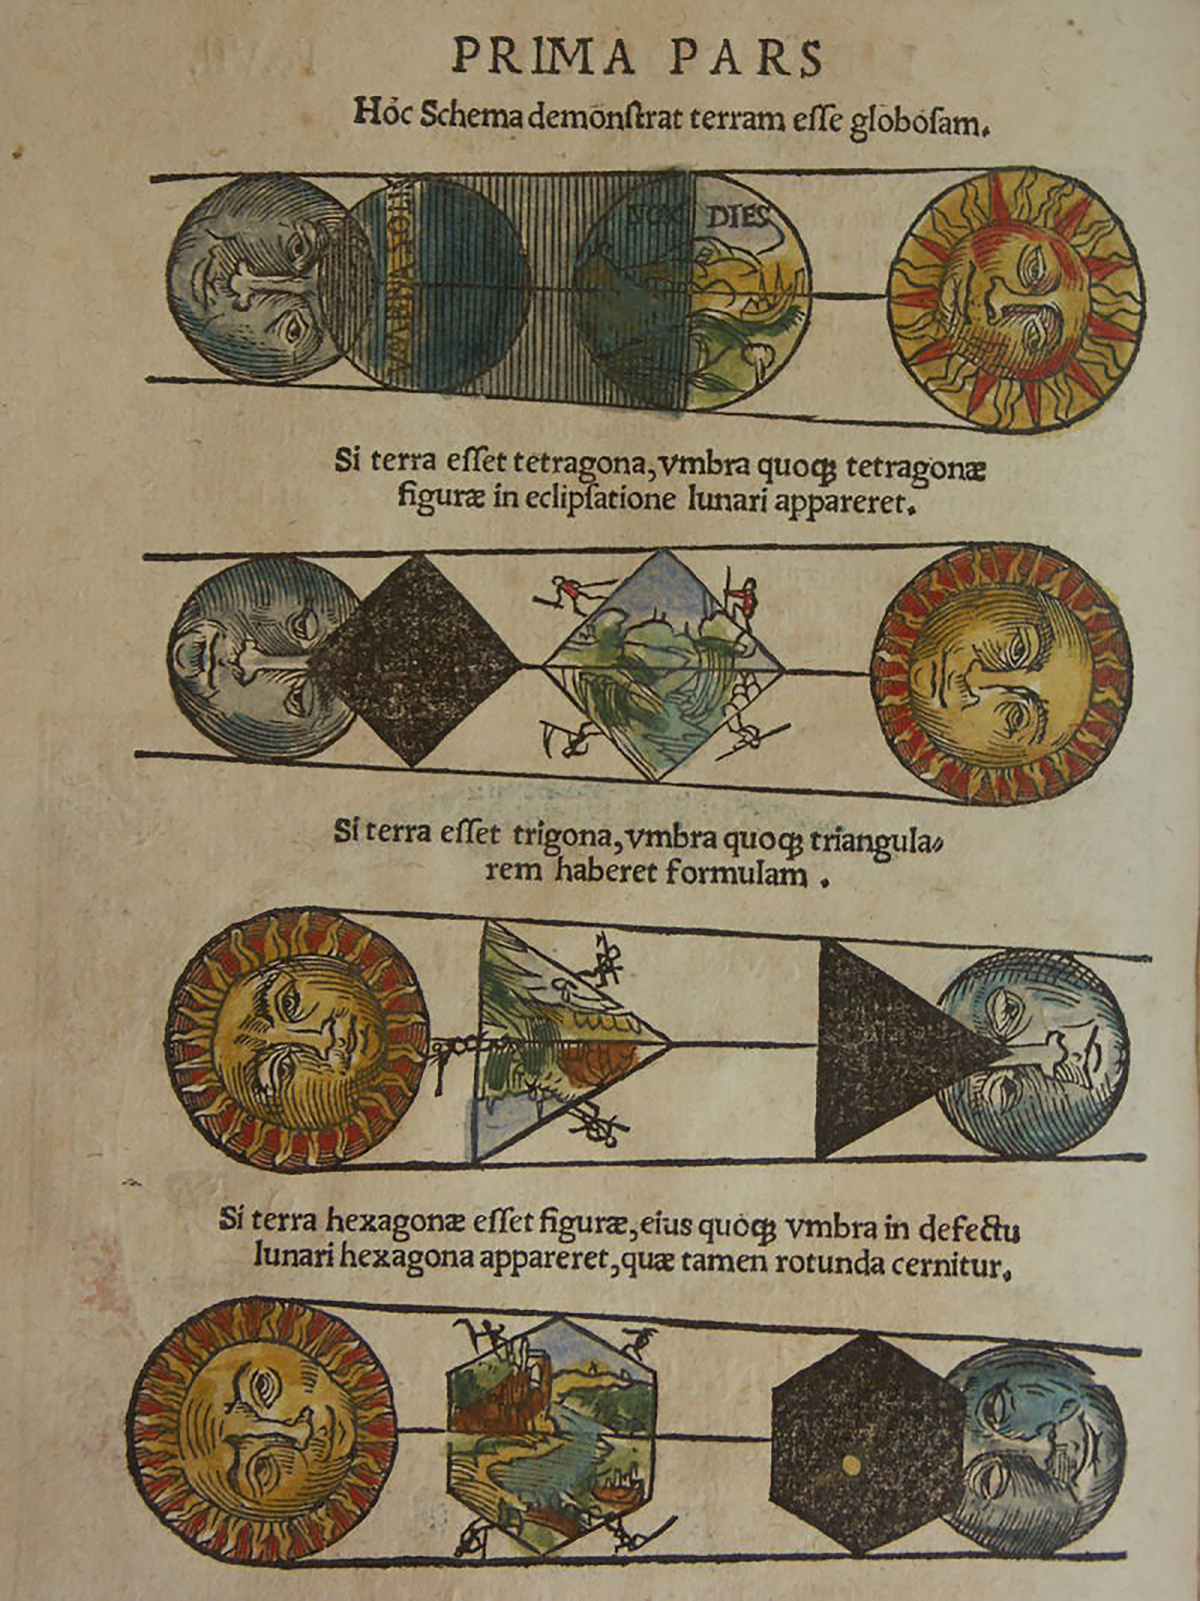 PRIMA PARS
Hóc Schema demōnſtrat terram eſſe globoſam.
NOX DIES
VMBRA SOLIS
Si terra eſſet tetragona, vmbra quoqꝫ tetragonæ
figuræ in eclipſatione lunari appareret.
Si terra eſſet trigona, vmbra quoqꝫ triangula⸗
rem haberet formulam .
Si terra hexagonæ eſſet figuræ, eius quoqꝫ vmbra in defectu
lunari hexagona appareret, quæ tamen rotunda cernitur.